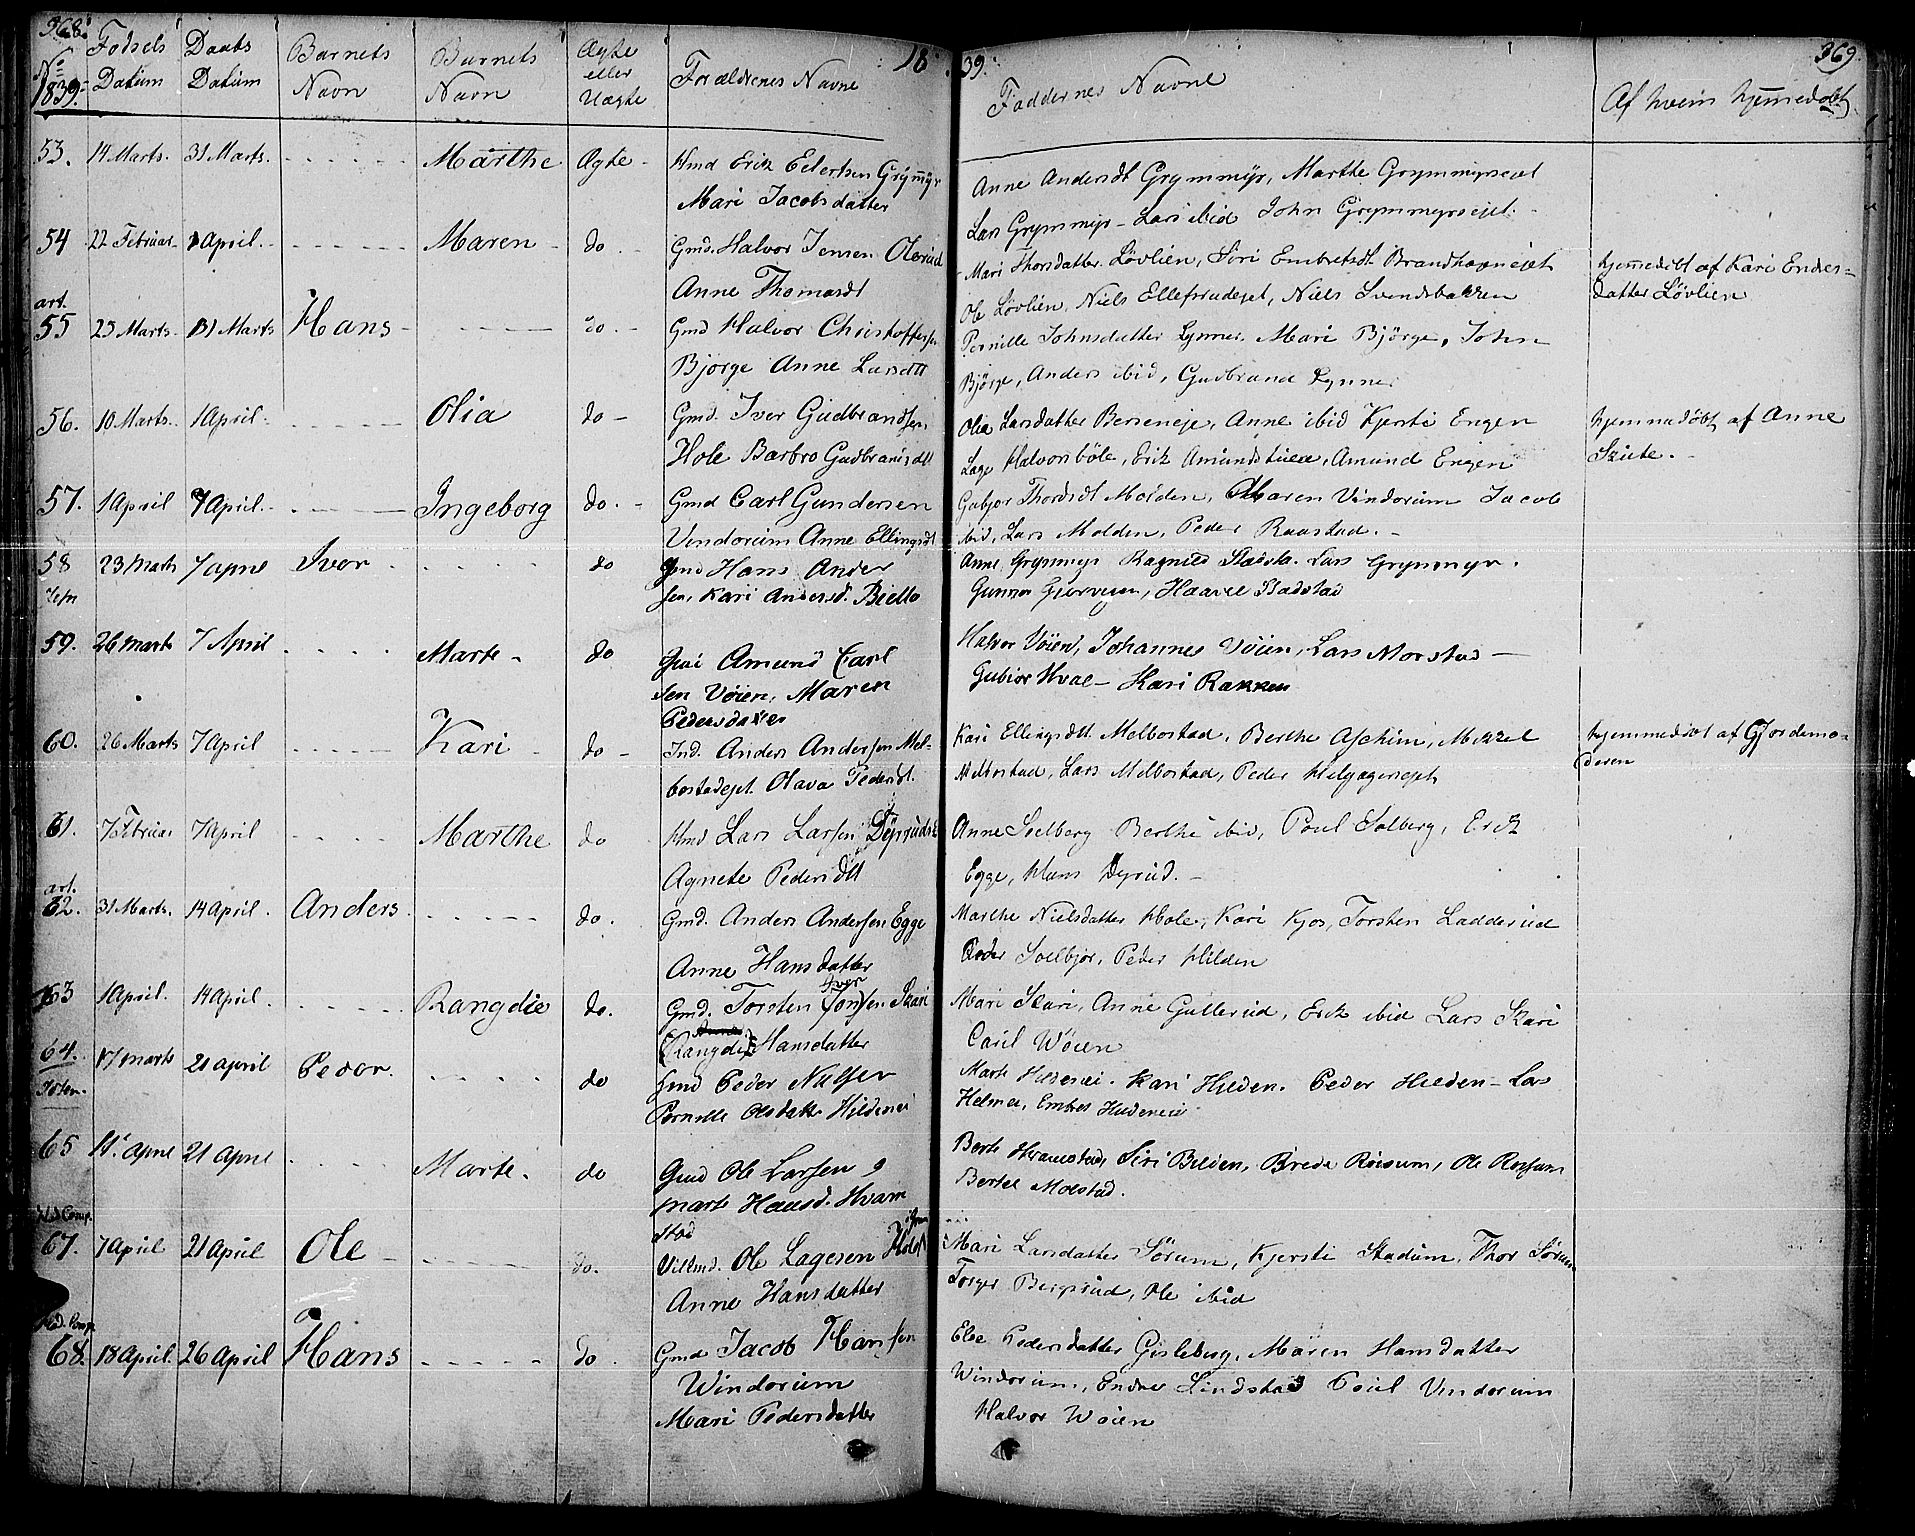 368. 18
39. 369.
No 1839. Fødsels Datum Daabs Datum Barnets Navn Barnets Navn Ægte eller Uægte Forældrenes Navne Faddernes Navne Af hvem hjemmedøbt.
53. 14 Marts. 31 Marts. Marthe Ægte Hmd Erik Eilertsen Grymyr Anne Andersdt Grymmyr, Marthe Grymmyrseiet
Mari Jacobsdatter Lars Grymmyr - Lars ibid John Grymmyrsejet.
54 22 Februar 1 April. Maren do. Gmd. Halvor Jensen Olerud Mari Thorsdatter Løvlien, Siri Embretsdt Brandhagnejet hjemmedøbt af Kari Enders-
Anne Thomasdt Ole Løvlien, Niels Ellefsrudejet, Niels Svendsbakken datter Løvlien
art.
55 25 Marts 31 Marts Hans do. Gmd Halvor Christoffersen Pernille Johnsdatter Lynner. Mari Bjørge, John
Bjørge Anne Larsdtt Bjørge, Anders ibid, Gudbrand Lynner
56. 10 Marts. 1 April. Olia do Gmd. Iver Gudbrandsen Olia Larsdatter Berseneje, Anne ibid Kjersti Engen hjemmedøbt af Anne
Hole Barbro Gudbrandsdtt Lage Halvorsbøle, Erik Amundstuen, Amund Engen Skute.
57. 1 April 7 April. Ingeborg do. Gmd Carl Gundersen Gubjør Thordsdt Molden, Maren Vindorum Jacob
Vindorum Anne Ellingsdt ibid, Lars Molden, Peder Raastad.
58 23 Marts 7 April Iver do Gmd Hans Ander Anne Grymmyr Ragnild Lars Grymmyr.
sen, Kari Andersd. Bielle Gunner Haavel
59. 26 Marts 7 April Marte do Amund Carl Halvor Vøien, Johannes Vøien, Lars Morstad
sen Vøien, Maren Gubiør Hval - Kari Rakken
Pedersdatter
60. 26 Marts 7 April Kari do Ind. Anders Andersen Mel- Kari Ellingsdtt Melbostad, Berthe Aschim, Mikkel hjemmedøbt af Gjordemo-
bostadejet. Olava Pedersdt. Melbostad, Lars Melbostad, Peder Helgagersejet deren
61. 7 Februar 7 April Marthe do Hmd Lars Larsen Dyrruds Anne Soelberg Berthe ibid, Poul Solberg, Erik
Agnete Pedersdtt Egge, Hans Dyrud.
art.
62. 31 Marts. 14 April. Anders do. Gmd. Anders Andersen Egge Marthe Nielsdatter Hole, Kari Kjos, Torsten Ladderud
Anne Hansdatter Peder Soelbjør, Peder Hilden
63 1 April. 14 April. Rangdie do. Gmd. Torsten Iversen Skari Mari Skari, Anne Gullerud, Erik ibid Lars Skari
Rangdie Hansdatter Caril Wøien
64. 17 Marts 21 April Peder. do Gmd Peder Nilsen Marte Hildenei. Kari Hilden. Peder Hilden - Lars
Pernille Olsdatter Hildenei Helmei, Embret Hildenei
65 14 April 21 April Marte. do Gmd Ole Larsen og Berte Hvamstad, Siri Bilden, Brede Røisum, Ole Røisum
Marte Hansd. Hvam Bertel Molstad.
stad
67. 7 April 21 April Ole do. Ole Lagesen Mari Larsdatter Sørum, Kjersti Stadum, Thor Sørum
Anne Hansdatter Torger Bergsrud, Ole ibid
68. 18 April. 26 April Hans do. Gmd Jacob Hansen Eli Pedersdatter Gisleberg, Maren Hansdatter
Windorum Windorum, Endre Lindstad Poul Vindorum
Mari Pedersdatter Halvor Wøien